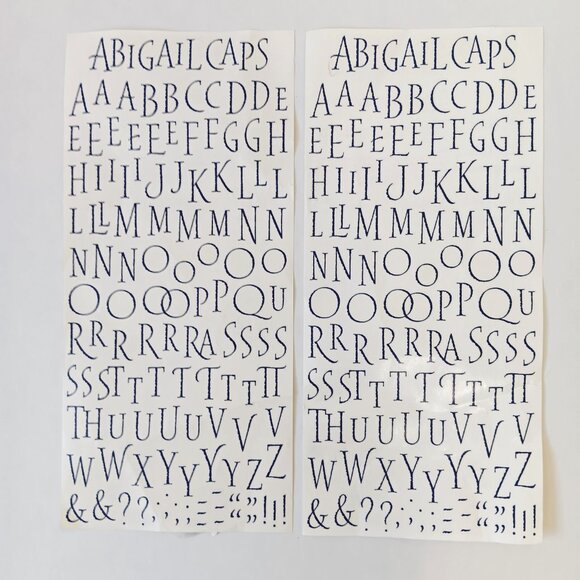 ABIGAIL CAPS
AAABBCCDDE
EEEEEEFFGGH
HIIIIJJKKLLL
LLLMMMMMNN
NNNOOOOOO
OOOOOPPQU
RRRRRRRASSSS
SSSTTTTTTTTT
THUUUUVVVV
WWXYYYYYZZ
&&??,:;;== “”!!!
ABIGAIL CAPS
AAABBCCDDE
EEEEEEFFGGH
HIIIIJJKKLLL
LLLMMMMMNN
NNNOOOOOO
OOOOOPPQU
RRRRRRRASSSS
SSSTTTTTTTTT
THUUUUVVVV
WWXYYYYYZZ
&&??,:;;== “”!!!